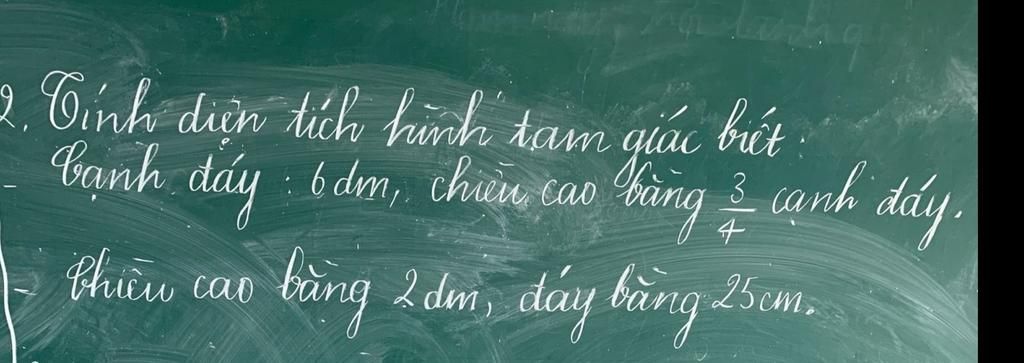 2. Tính diện tích hình tam giác biết:
- Cạnh đáy: 6 dm, chiều cao bằng 3/4 cạnh đáy.
- Chiều cao bằng 2 dm, đáy bằng 25 cm.